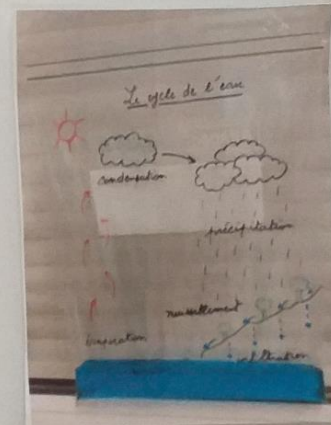 Le cycle de l'eau
condensation
précipitation
ruissellement
évaporation
infiltration